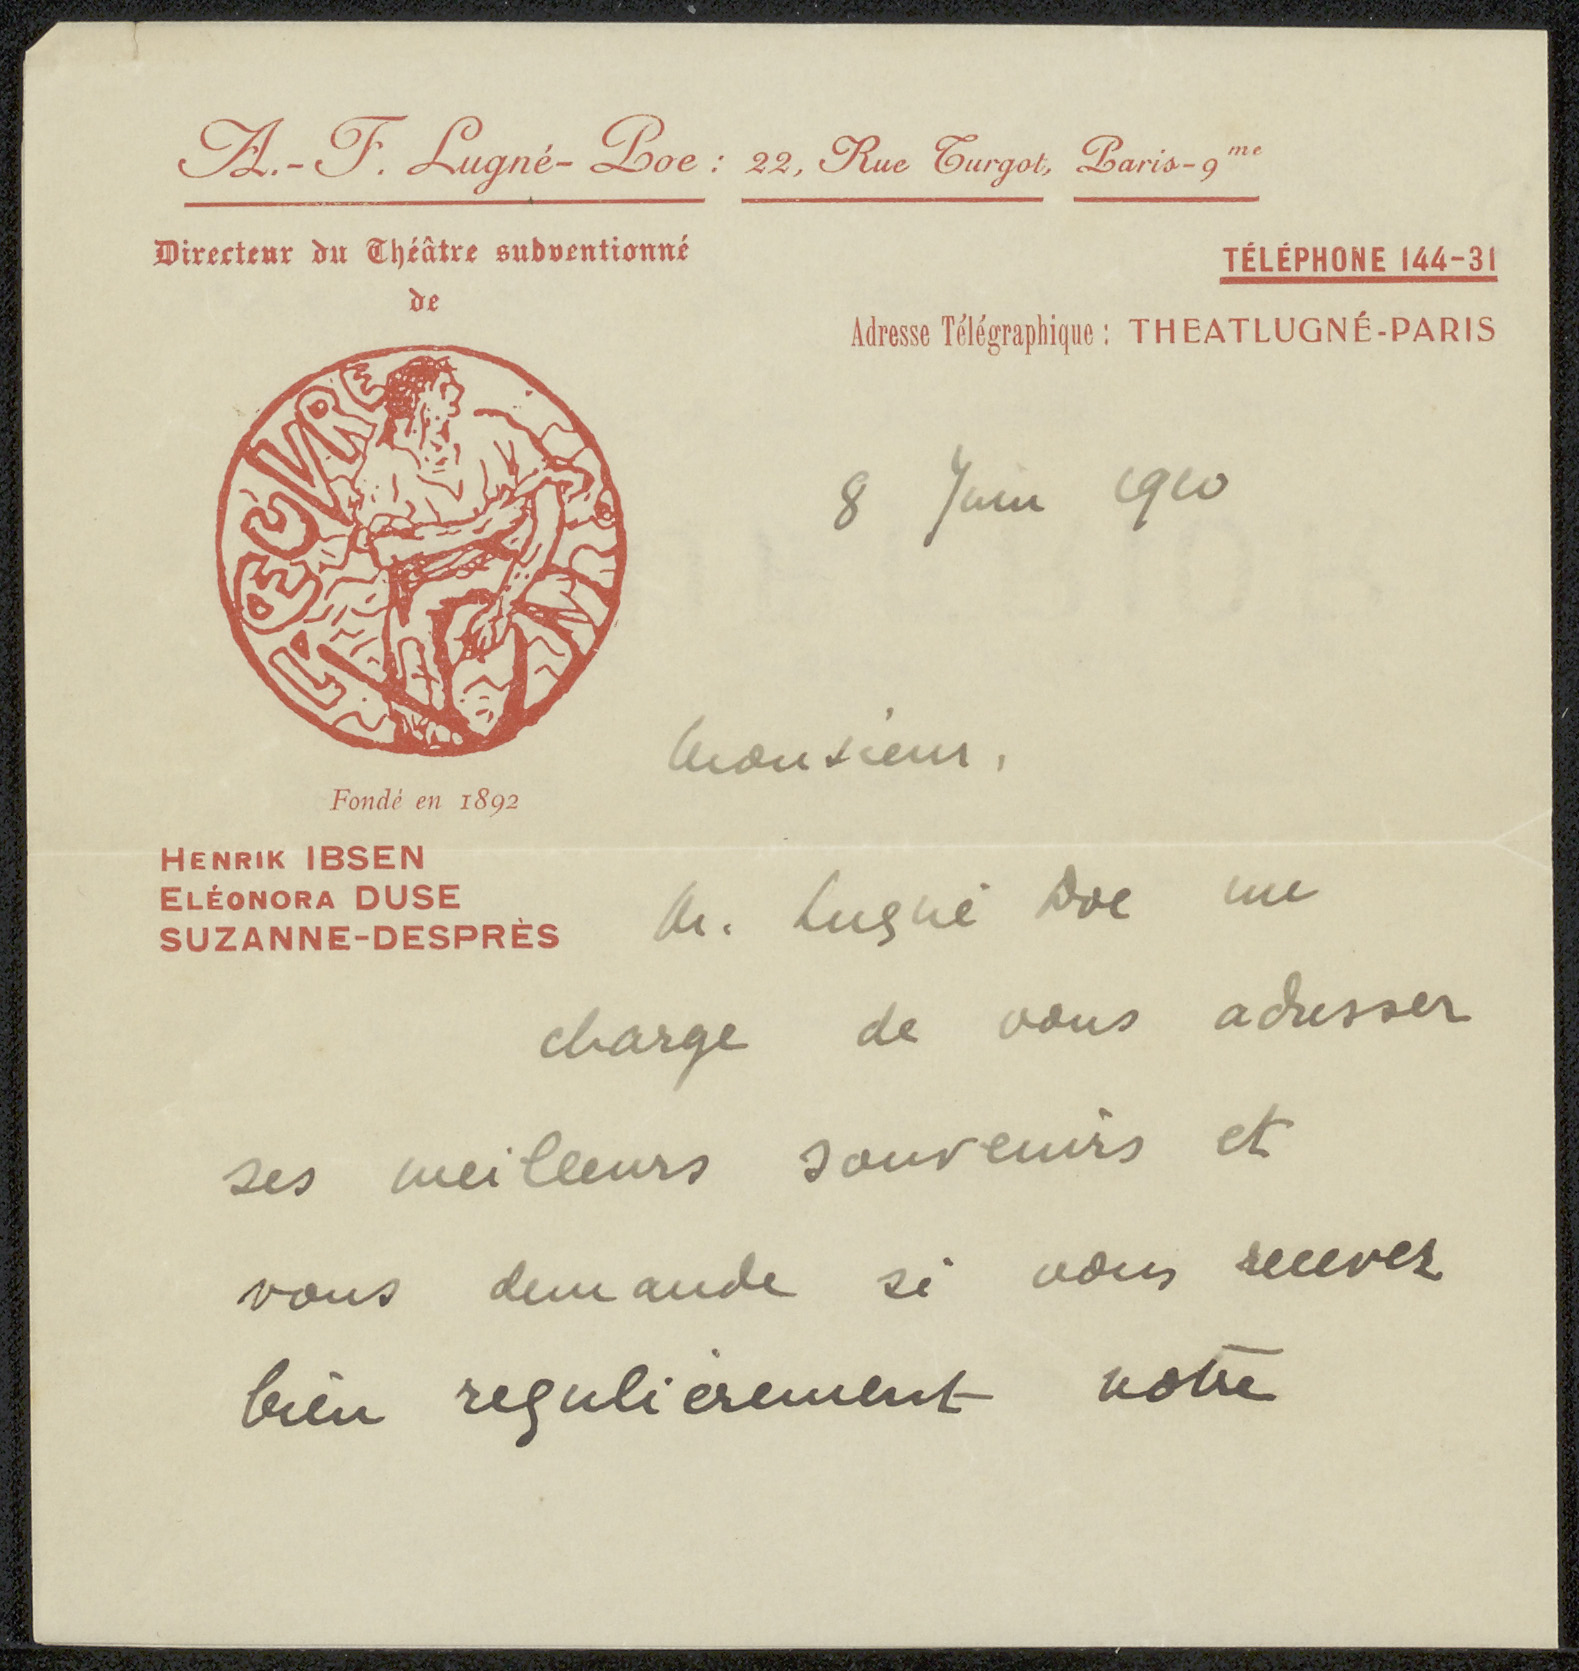 A.-F. Lugné-Poe : 22, Rue Turgot, Paris-9me
Directeur du Théâtre subventionné
de
TÉLÉPHONE 144-31
Adresse Télégraphique : THEATLUGNÉ-PARIS
L'OEUVRE
8 Juin 1910
Fondé en 1892
Monsieur,
HENRIK IBSEN
ELÉONORA DUSE
SUZANNE-DESPRÈS
M. Lugné Poe me
charge de vous adresser
ses meilleurs souvenirs et
vous demande si vous recevez
bien regulièrement notre